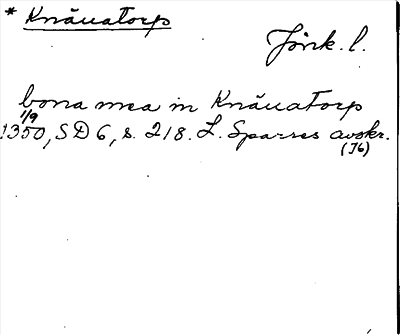 * Knäuatorp
Jönk. l.
bona mea in Knäuatorp
1/9
1350, SD 6, s. 218. L. Sparres avskr.
(J6)